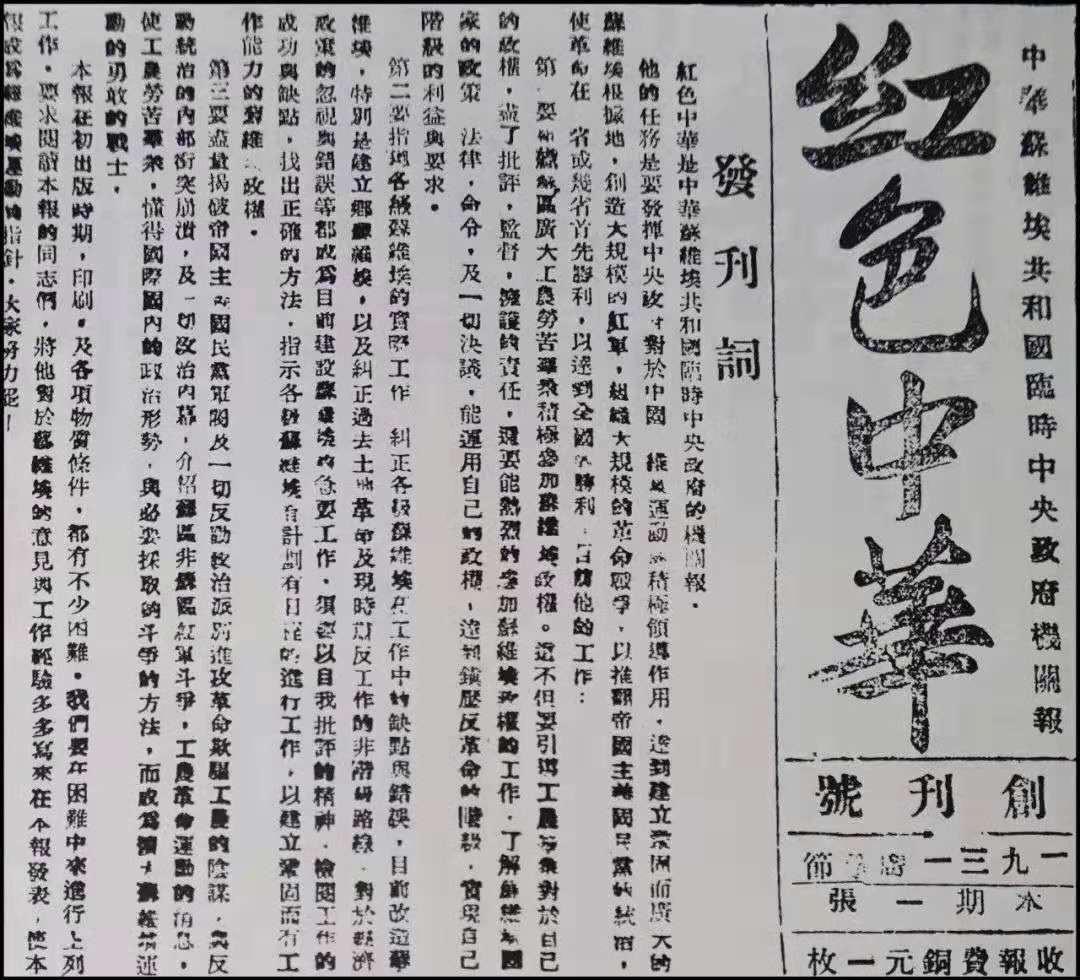 中華蘇維埃共和國臨時中央政府機關報
紅色中華
創刊號
一九三一節
本期一張
收報費銅元一枚
發刊詞
紅色中華是中華蘇維埃共和國臨時中央政府的機關報．
他的任務是要發揮中央政府對於中國維埃運動的積極領導作用，達到建立鞏固而廣大的
蘇維埃根據地，創造大規模的紅軍，組織大規模的革命戰爭，以推翻帝國主義國民黨的統治，
使革命在省或幾省首先勝利，以達到全國的勝利．目前他的工作：
第要組織蘇區廣大工農勞苦羣衆積極參加蘇維埃政權。這不但要引導工農羣衆對於自己
的政權，盡了批評，監督，擁護的責任，還要能熱烈的參加蘇維埃政權的工作．了解蘇維埃國
家的政策法律，命令，及一切決議，能運用自己的政權，達到鎮壓反革命的階級，實現自己
階級的利益與要求。
第二要指導各級蘇維埃的實際工作糾正各級蘇維埃在工作中的缺點與錯誤，目前改造蘇
維埃，特別是建立鄉蘇維埃，以及糾正過去土地革命及現時期反工作的非階級路線．對於經濟
政策的忽視與錯誤等都成為目前建設蘇維埃的急要工作，須要以自我批評的精神．檢閱工作的
成功與缺點，找出正確的方法．指示各級蘇維埃有計劃有日程的進行工作，以建立鞏固而有工
作能力的蘇維政權．
第三要盡量揭破帝國主義國民黨軍閥及一切反動政治派別進攻革命欺騙工農的陰謀．與反
動統治的內部衝突崩潰，及一切政治內幕，介紹蘇區非蘇區紅軍斗爭，工農革命運動的消息，
使工農勞苦羣衆，懂得國際國內的政治形勢，與必要採取的斗爭的方法，而成為擴大蘇維埃運
動的勇敢的戰士．
本報在初出版時期，印刷，及各項物質條件，都有不少困難．我們要在困難中來進行上列
工作，要求閱讀本報的同志們，將他對於蘇維埃的意見與工作經驗多多寫來在本報發表，使本
報成為蘇維埃運動的指針．大家努力罷！